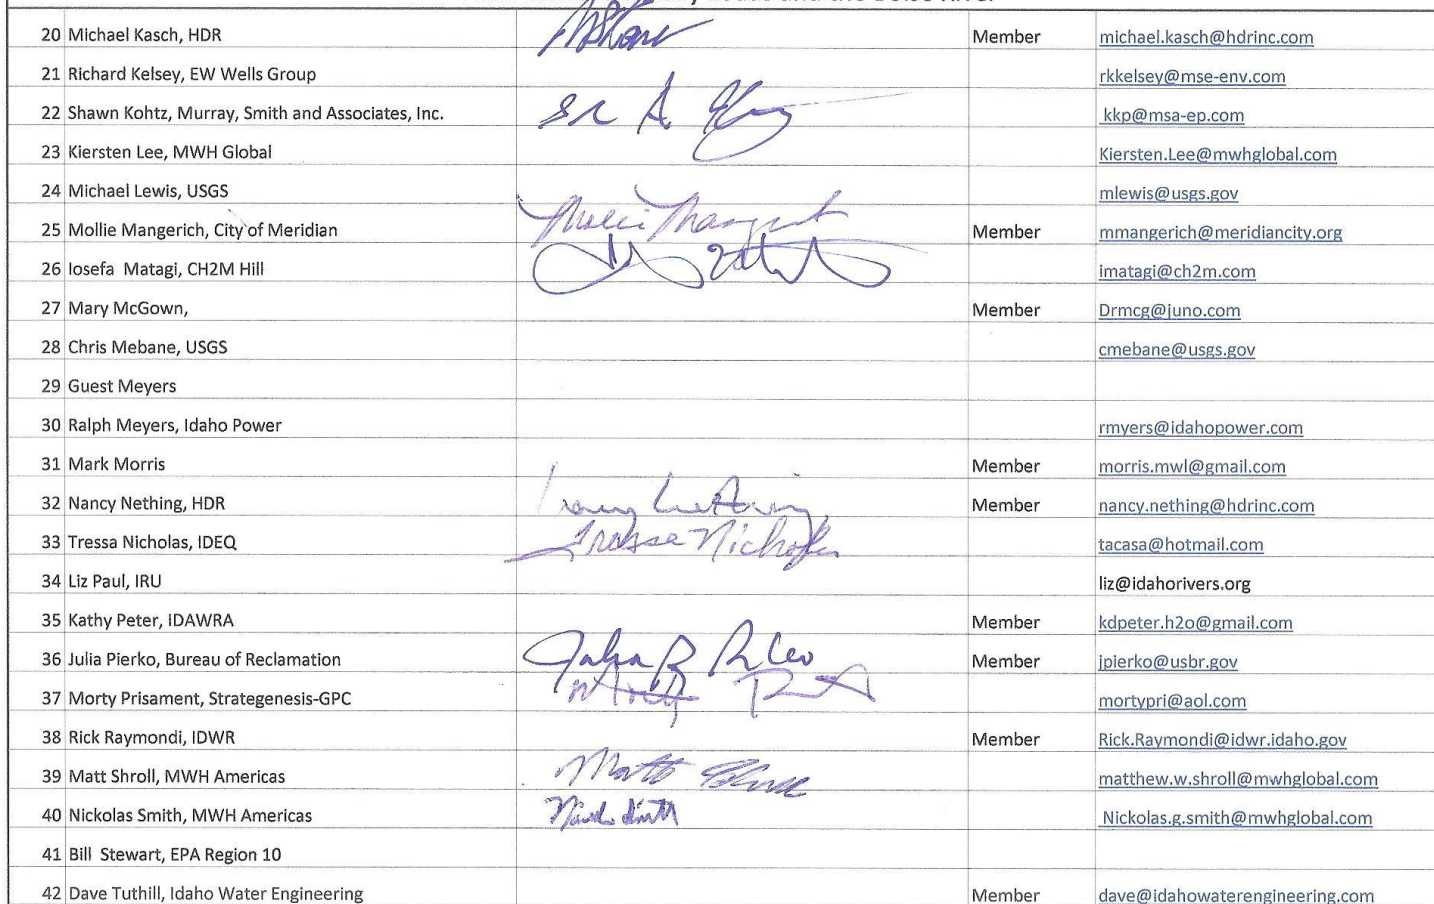 and the Boise River
20 Michael Kasch, HDR Member michael.kasch@hdrinc.com
21 Richard Kelsey, EW Wells Group rkkelsey@mse-env.com
22 Shawn Kohtz, Murray, Smith and Associates, Inc. kkp@msa-ep.com
23 Kiersten Lee, MWH Global Kiersten.Lee@mwhglobal.com
24 Michael Lewis, USGS mlewis@usgs.gov
25 Mollie Mangerich, City of Meridian Mollie Mangerich Member mmangerich@meridiancity.org
26 Iosefa Matagi, CH2M Hill imatagi@ch2m.com
27 Mary McGown, Member Drmcg@juno.com
28 Chris Mebane, USGS cmebane@usgs.gov
29 Guest Meyers
30 Ralph Meyers, Idaho Power rmyers@idahopower.com
31 Mark Morris Member morris.mwl@gmail.com
32 Nancy Nething, HDR Nancy Nething Member nancy.nething@hdrinc.com
33 Tressa Nicholas, IDEQ Tressa Nicholas tacasa@hotmail.com
34 Liz Paul, IRU liz@idahorivers.org
35 Kathy Peter, IDAWRA Member kdpeter.h2o@gmail.com
36 Julia Pierko, Bureau of Reclamation Member jpierko@usbr.gov
37 Morty Prisament, Strategenesis-GPC mortypri@aol.com
38 Rick Raymondi, IDWR Member Rick.Raymondi@idwr.idaho.gov
39 Matt Shroll, MWH Americas Matt Shroll matthew.w.shroll@mwhglobal.com
40 Nickolas Smith, MWH Americas Nickolas.g.smith@mwhglobal.com
41 Bill Stewart, EPA Region 10
42 Dave Tuthill, Idaho Water Engineering Member dave@idahowaterengineering.com